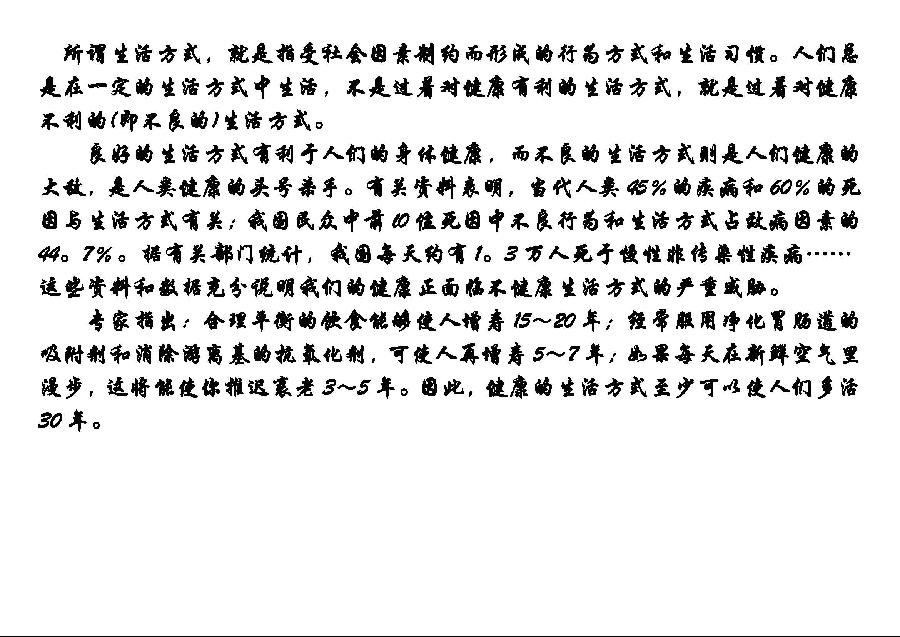 所谓生活方式，就是指受社会因素制约而形成的行为方式和生活习惯。人们总
是在一定的生活方式中生活，不是过着对健康有利的生活方式，就是过着对健康
不利的(即不良的)生活方式。
良好的生活方式有利于人们的身体健康，而不良的生活方式则是人们健康的
大敌，是人类健康的头号杀手。有关资料表明，当代人类45%的疾病和60%的死
因与生活方式有关；我国民众中前10位死因中不良行为和生活方式占致病因素的
44。7%。据有关部门统计，我国每天约有1。3万人死于慢性非传染性疾病……
这些资料和数据充分说明我们的健康正面临不健康生活方式的严重威胁。
专家指出：合理平衡的饮食能够使人增寿15～20年；经常服用净化胃肠道的
吸附剂和消除游离基的抗氧化剂，可使人再增寿5～7年；如果每天在新鲜空气里
漫步，这将能使你推迟衰老3～5年。因此，健康的生活方式至少可以使人们多活
30年。